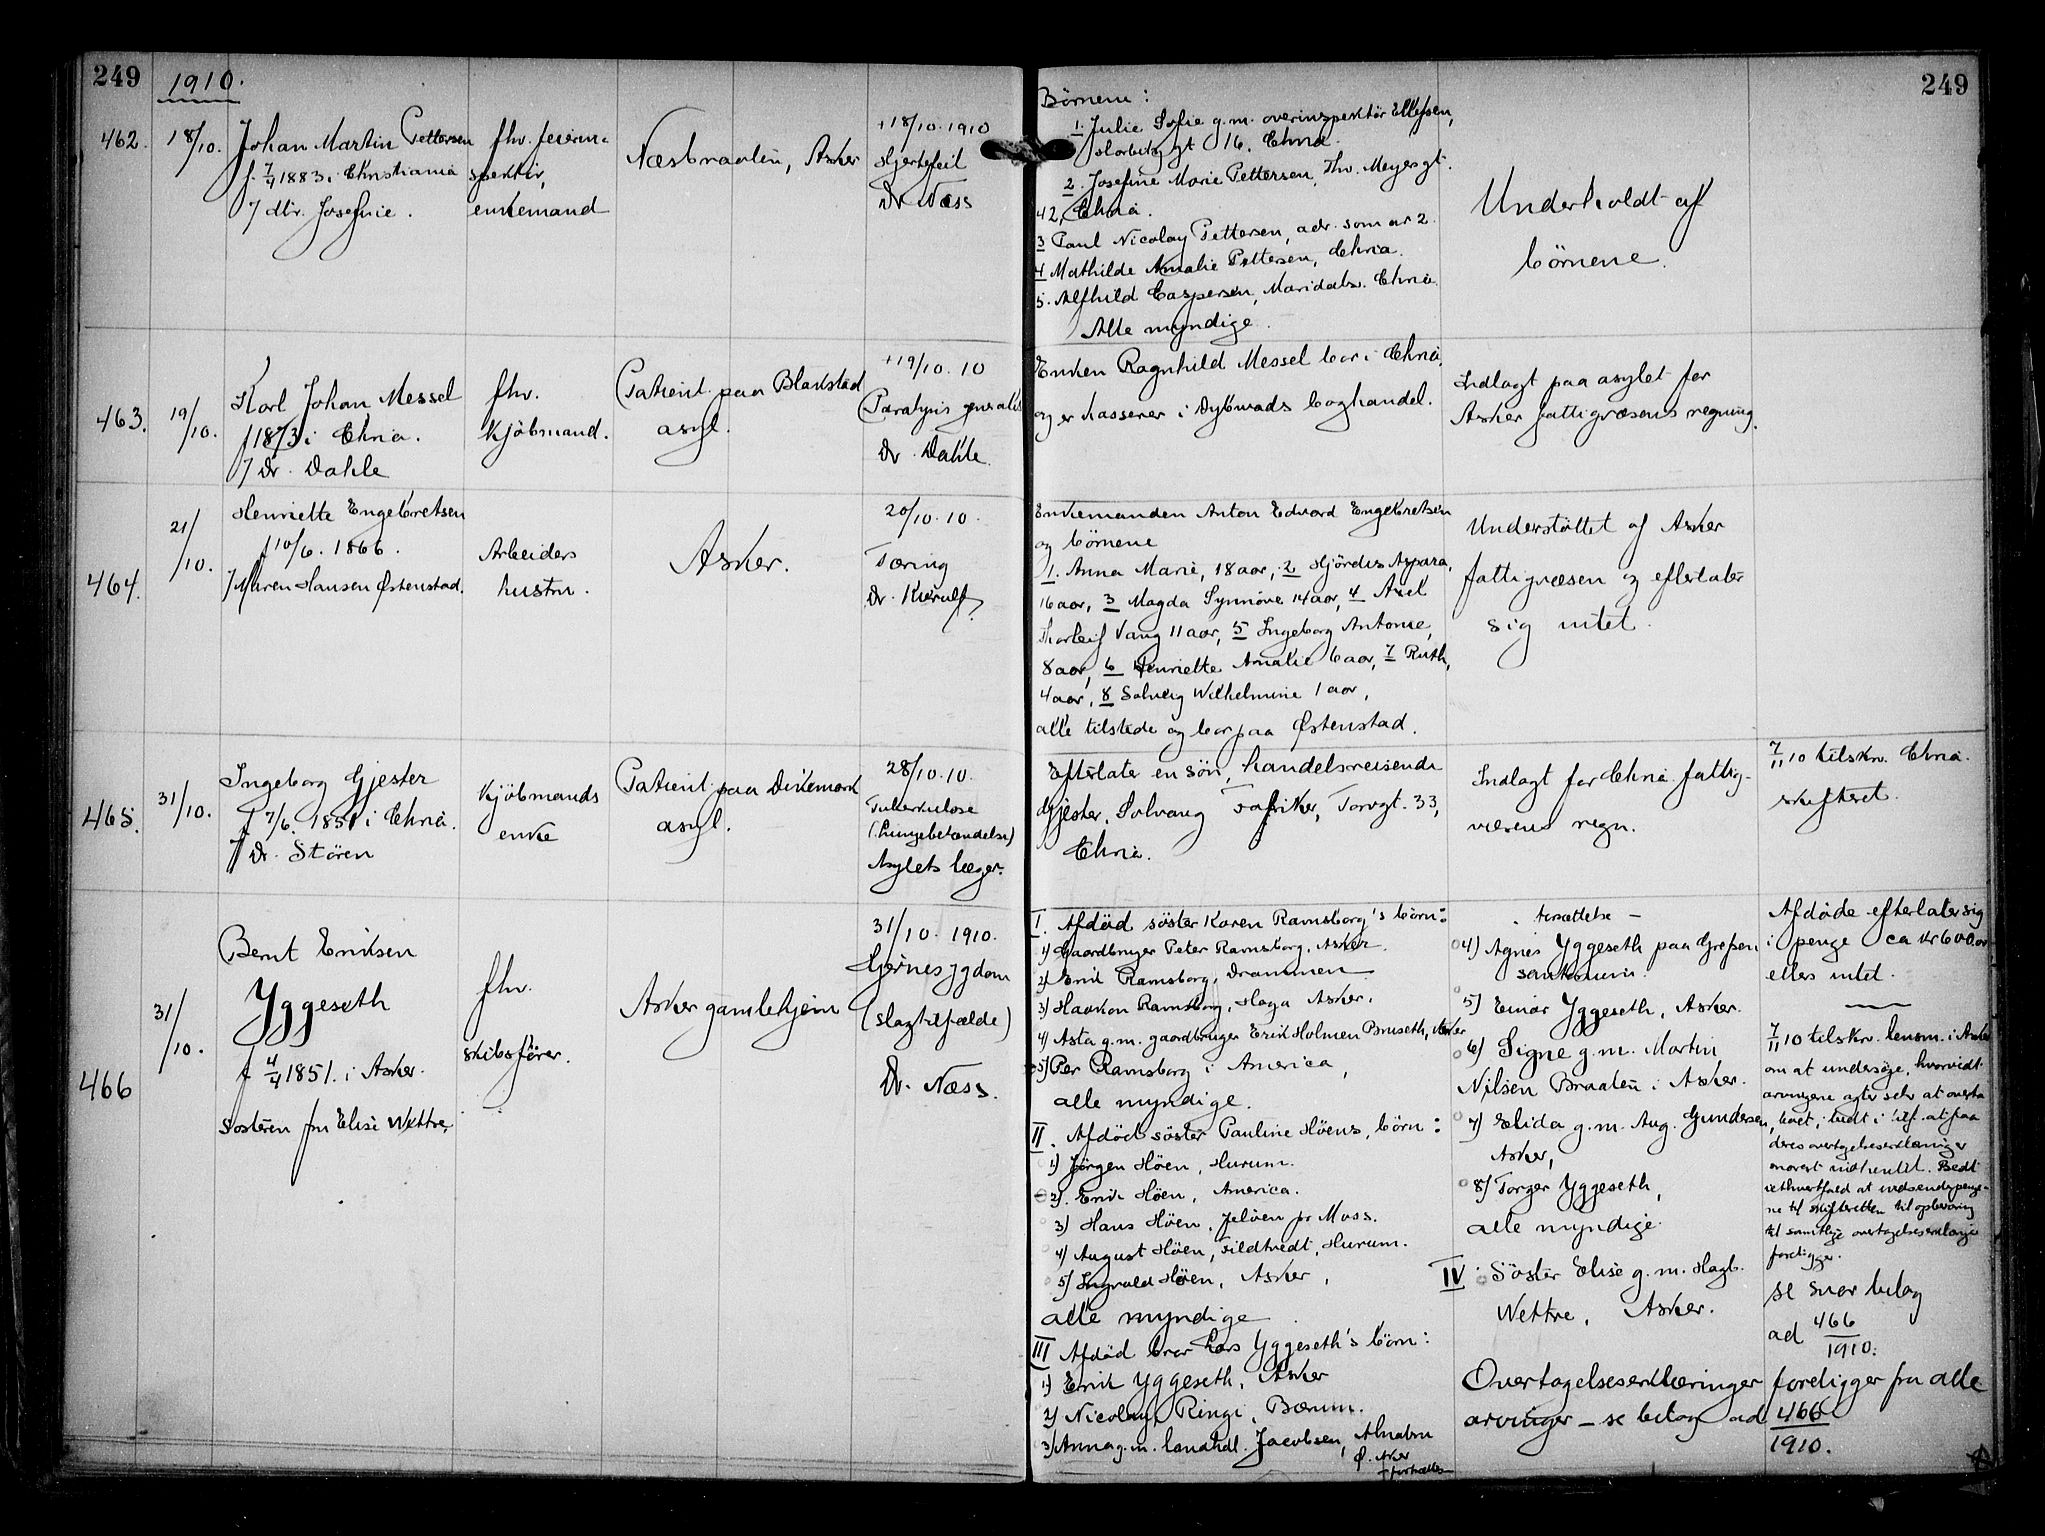 249
1910.
249
462.
18/10.
Johan Martin Pettersen
f. 7/4 1883 i Christiania
/ dtr. Josefine.
fhv. feierin-
spektör,
enkemand
Næsbraaten, Asker
+18/10. 1910
Hjertefeil
Dr Næss
Börnene:
1. Julie Sofie g.m. overinspektör Ellefsen,
gt 16, Chria.
2. Josefine Marie Pettersen, Thv. Meyersgt.
42, Chria.
3 Paul Nicolay Pettersen, adr. som nr 2.
4 Mathilde Amalie Pettersen, Chria.
5. Alfhild Caspersen, Maridalsv. Chria.
Alle myndige.
Underholdt af
börnene.
463.
19/10.
Karl Johan Messel
f 1873 i Chria.
/ Dr. Dahle
fhv.
Kjöbmand.
Patient paa Blakstad
asyl.
+19/10. 10
Paralysis generalis
Dr. Dahle.
Enken Ragnhild Messel bor i Chria,
og er kasserer i Dybwads boghandel.
Indlagt paa asylet for
Asker fattigvæsens regning.
464.
21/10.
Henriette Engebretsen
f 10/6. 1866.
/ Maren Hansen Østenstad.
Arbeiders
hustru.
Asker.
20/10. 10.
Tæring
Dr. Kierulf.
Enkemanden Anton Edvard Engebretsen
og börnene
1. Anna Marie, 18 aar, 2 Hjördis Aspara,
16 aar, 3 Magda Synnöve 14 aar, 4 Axel
Thorleif Vang 11 aar, 5 Ingeborg Antonie,
8 aar, 6 Henriette Amalie 6 aar, 7 Ruth,
4 aar, 8 Solveig Wilhelmine 1 aar,
alle tilstede og bor paa Østenstad.
Understöttet af Asker
fattigvæsen og efterlater
sig intet.
465.
31/10.
Ingeborg Gjester
f 7/6. 1851 i Chria.
/ Dr. Stören
Kjöbmands
enke
Patient paa Dikemark
asyl.
28/10. 10.
Tuberkulose
(lungebetændelse)
Asylets læger.
Efterlater en sön, handelsreisende
Gjester, Solvang Fabriker, Torvgt. 33,
Chria.
Indlagt for Chria fattig-
væsens regn.
7/11 10 tilskr. Chria.
skifteret.
466
31/10.
Bernt Eriksen
Yggeseth
f 4/4 1851. i Asker.
Sösteren fru Elise Wettre.
fhv.
skibsförer.
Asker gamlehjem
31/10. 1910.
Hjernesygdom
(slagtilfælde)
Dr. Næss.
I. Afdöd söster Karen Ramsborg's börn:
1) Gaardbruger Peter Ramsborg, Asker.
2) Erik Ramsborg, Drammen
3) Haakon Ramsborg, Haga Asker.
4) Asta g.m. gaardbruger Erik Holmen Bruseth, Asker
5) Per Ramsborg i America,
alle myndige.
II. Afdöd söster Pauline Höens, börn:
1) Jörgen Höen, Hurum.
2). Erik Höen, America.
3) Hans Höen, Jelöen pr Moss.
4) August Höen, Tildtvedt, Hurum.
5) Ingvald Höen, Asker,
alle myndige.
III Afdöd bror Lars Yggeseth's börn:
1) Erik Yggeseth, Asker
2) Nicolay Ringi, Bærum.
3) Anna g.m. landhdl. Jacobsen,
Ø. Asker
- fortsættes
- fortsættelse -
4) Agnes Yggeseth paa Grefsen
sanatorium.
5) Einar Yggeseth, Asker.
6) Signe g.m. Martin
Nilsen Braaten i Asker.
7) Elida g.m. Aug. Gundersen,
Asker,
8) Torger Yggeseth,
alle myndige.
IV. Söster Elise g.m. Hagb.
Wettre, Asker.
Afdöde efterlater sig
i penge ca kr 600.00
ellers intet.
7/11 10 tilskr. lensm. i Asker
om at undersöge, hvorvidt
arvingene agter selv at overta
boet, bedt i tilf. at faa
deres overtagelseserklæringer
snarest indhentet. Bedt
iethvertfald at indsende penge-
ne til skifteretten til opbevaring
til samtlige overtagelseserklæringer
foreligger.
se svar bilag
ad 466/1910.
Overtagelseserklæringer foreligger fra alle
arvinger - se bilag ad 466/1910.